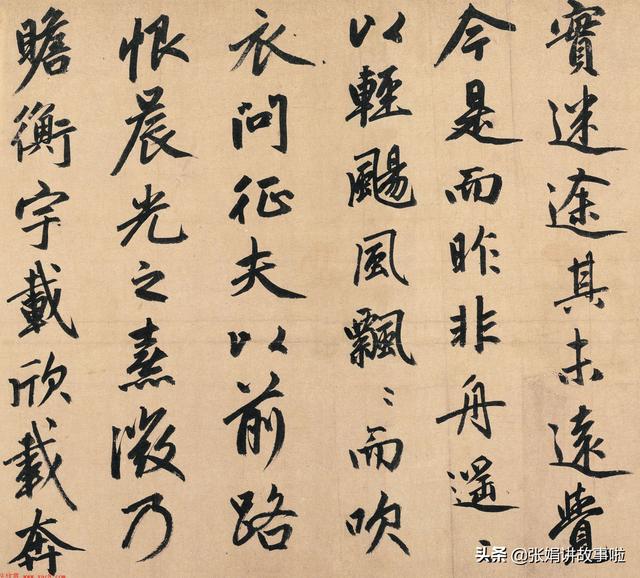 實迷途其未遠覺
今是而昨非舟遥〻
以輕颺風飄〻而吹
衣問征夫以前路
恨晨光之熹微乃
瞻衡宇載欣載奔
头条 @张娟讲故事啦